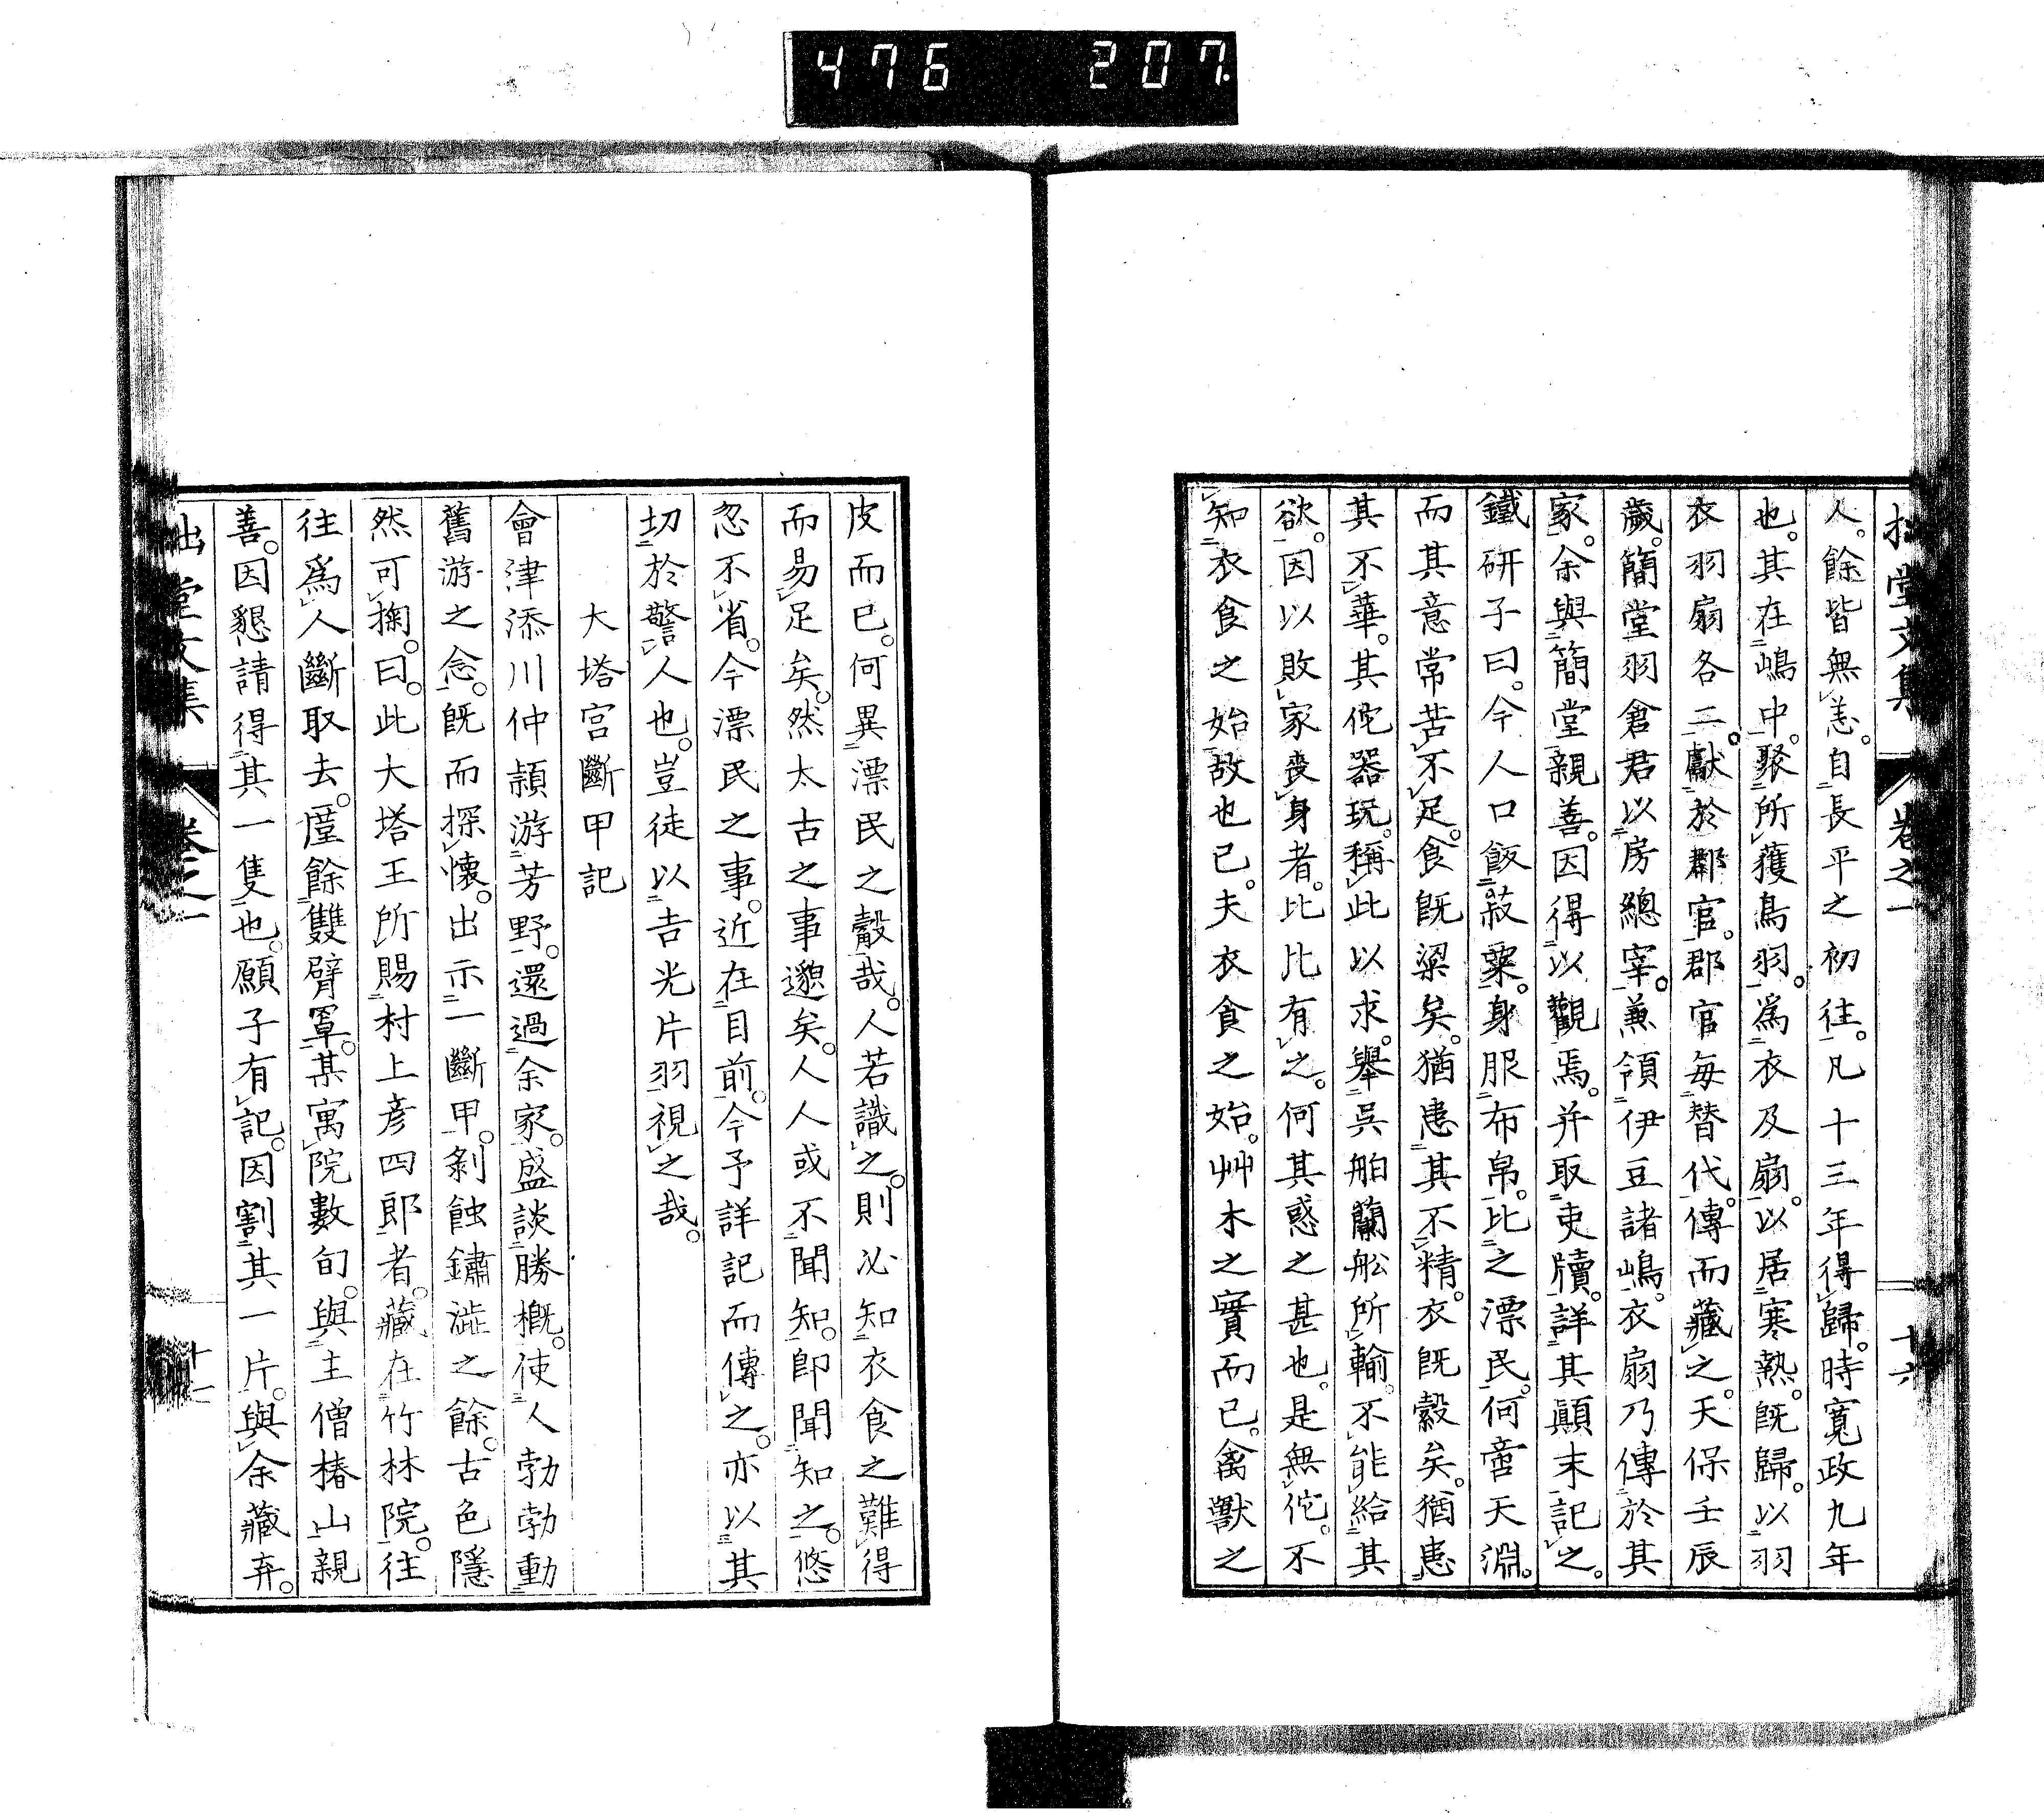 476 207
拙堂文集 卷之一 十六
人。餘皆無恙。自長平之初往。凡十三年得歸。時寬政九年
也。其在嶋中。聚所獲鳥羽。爲衣及扇。以居寒熱。既歸。以羽
衣羽扇各二。獻於郡官。郡官每替代。傳而藏之。天保壬辰
歲。簡堂羽倉君以房總宰。兼領伊豆諸嶋。衣扇乃傳於其
家。余與簡堂親善。因得以觀焉。并取吏牘。詳其顚末記之。
鐵研子曰。今人口飯菽粟。身服布帛。比之漂民。何啻天淵。
而其意常苦不足。食既粱矣。猶患其不精。衣既縠矣。猶患
其不華。其佗器玩。稱此以求。舉吳舶蘭舩所輸。不能給其
欲。因以敗家喪身者。比比有之。何其惑之甚也。是無佗。不
知衣食之始故也已。夫衣食之始。艸木之實而已。禽獸之
皮而已。何異漂民之鷇哉。人若識之。則必知衣食之難得
而易足矣。然太古之事邈矣。人人或不聞知。卽聞知之。悠
忽不省。今漂民之事。近在目前。今予詳記而傳之。亦以其
切於警人也。豈徒以吉光片羽視之哉。
大塔宮斷甲記
會津添川仲頴游芳野。還過余家。盛談勝槪。使人勃勃動
舊游之念。既而探懷。出示一斷甲。剝蝕鏽澁之餘。古色隱
然可掬。曰。此大塔王所賜村上彦四郎者。藏在竹林院。往
往爲人斷取去。廑餘雙臂罩。某寓院數旬。與主僧椿山親
善。因懇請得其一隻也。願子有記。因割其一片。與余藏弆。
拙堂文集 卷之一